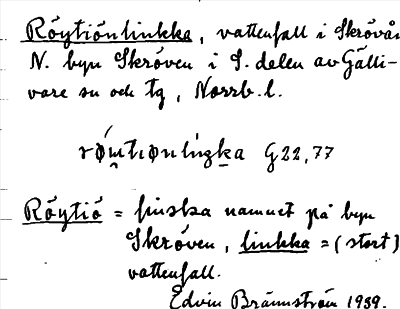 Röytiönlinkka, vattenfall i Skrövån
N. byn Skröven i S. delen av Gälli-
vare sn och tg, Norrb. l.
G22,77
Röytiö = finska namnet på byn
Skröven, linkka = (stort)
vattenfall.
Edvin Brännström 1939.